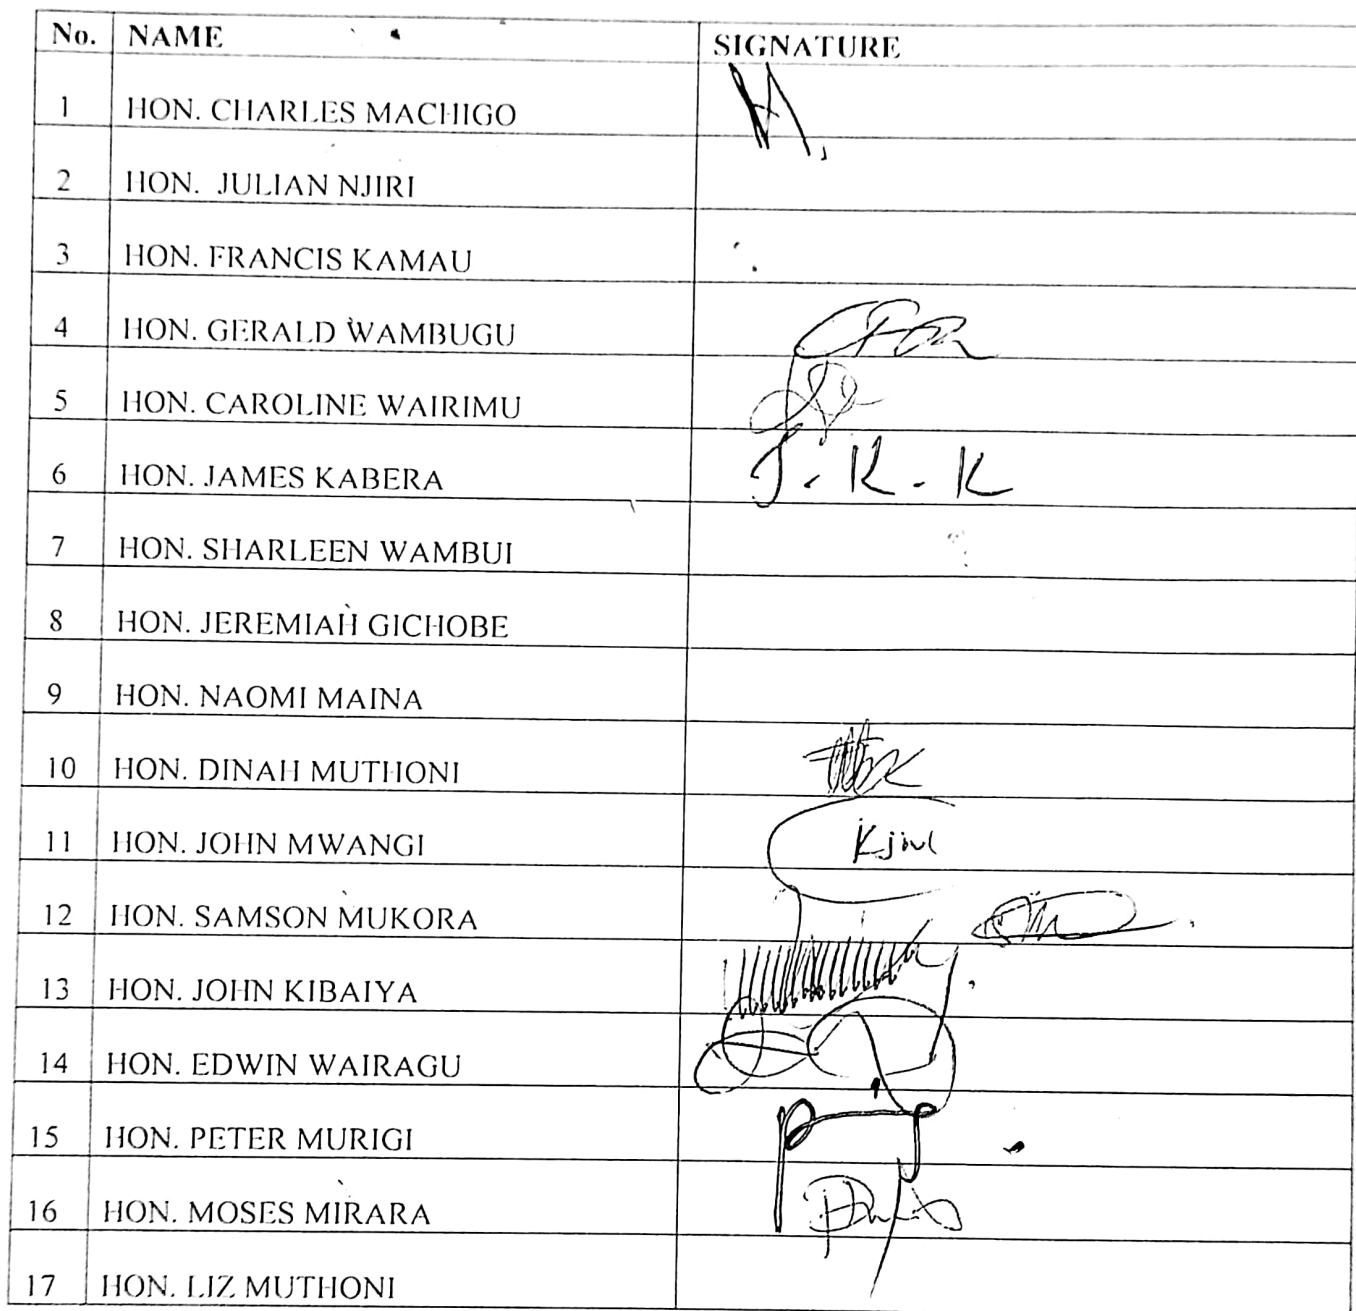 No. NAME SIGNATURE
1 HON. CHARLES MACHIGO
2 HON. JULIAN NJIRI
3 HON. FRANCIS KAMAU
4 HON. GERALD WAMBUGU
5 HON. CAROLINE WAIRIMU
6 HON. JAMES KABERA J. K. K
7 HON. SHARLEEN WAMBUI
8 HON. JEREMIAH GICHOBE
9 HON. NAOMI MAINA
10 HON. DINAH MUTHONI
11 HON. JOHN MWANGI
12 HON. SAMSON MUKORA
13 HON. JOHN KIBAIYA
14 HON. EDWIN WAIRAGU
15 HON. PETER MURIGI
16 HON. MOSES MIRARA
17 HON. LIZ MUTHONI